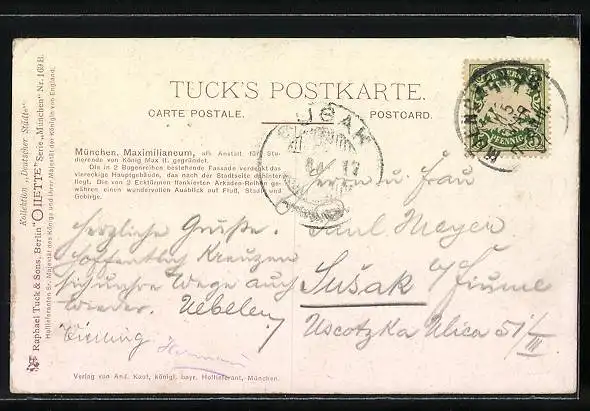 TUCK'S POSTKARTE.
CARTE POSTALE.
POSTCARD.
München, Maximilianeum, als Anstalt für Stu-
dierende von König Max II. gegründet.
Die in 2 Bogenreihen bestehende Fassade verdeckt das
viereckige Hauptgebäude, das nach der Stadtseite dahinter
liegt. Die von 2 Ecktürmen flankierten Arkaden-Reihen ge-
währen einen wundervollen Ausblick auf Fluß, Stadt und
Gebirge.
Herrn u. Frau
Paul Meyer
Sušak b/Fiume
Uscotzka Ulica 51/III
Herzliche Grüße.
Hoffentlich Kreuzen
sich unsere Wege auch
wieder.
Verlag von And. Kaut, königl. bayr. Hoflieferant, München.
Kollektion „Deutscher Städte"
Raphael Tuck & Sons, Berlin "OILETTE" Serie „München" Nr. 169 B.
Hoflieferanten Sr. Majestät des Königs und Ihrer Majestät der Königin von England.
BAYERN
5
PFENNIG